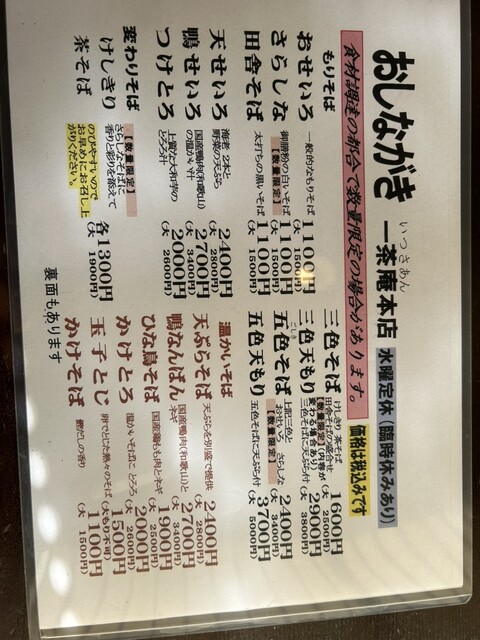 おしながき 一茶庵本店 水曜定休（臨時休みあり）
いっさあん
食材調達の都合で数量限定の場合があります。
価格は税込みです
もりそば
おせいろ 一般的なもりそば 1100円
（大 1500円）
さらしな 御膳粉の白いそば 1100円
【数量限定】（大 1500円）
田舎そば 太打ちの黒いそば 1100円
（大 1500円）
天せいろ 海老2本と野菜の天ぷら 2400円
（大 2800円）
鴨せいろ 国産鴨肉（和歌山）の温かい汁 2700円
（大 3400円）
つけとろ 上質な大和芋のとろろ汁 2000円
（大 2600円）
変わりそば
【数量限定】
けしきり さらしなそばに
茶そば 香りと彩りを添えて
各1300円
（大 1900円）
のびやすいので
お早めにお召し上
がりください。
三色そば けしきり・茶そば
田舎そばの盛合せ 1600円
【数量限定】（内容が（大 2500円）
変わる場合あり）
三色天もり 三色そばに天ぷら付 2900円
（大 3800円）
ごしき
五色そば 上記三色と
おせいろ、さらしな 2400円
【数量限定】（大 3400円）
五色天もり 五色そばに天ぷら付 3700円
（大 5000円）
温かいそば
天ぷらそば 天ぷらを別盛で提供 2400円
（大 2800円）
鴨なんばん 国産鴨肉（和歌山）とネギ 2700円
（大 3400円）
ひな鳥そば 国産鶏もも肉とネギ 1900円
（大 2500円）
かけとろ 温かいそばに とろろ 2000円
（大 2600円）
玉子とじ 卵でとじた熱々のそば 1500円
（大もり不可）
かけそば 鰹だしの香り 1100円
（大 1500円）
裏面もあります